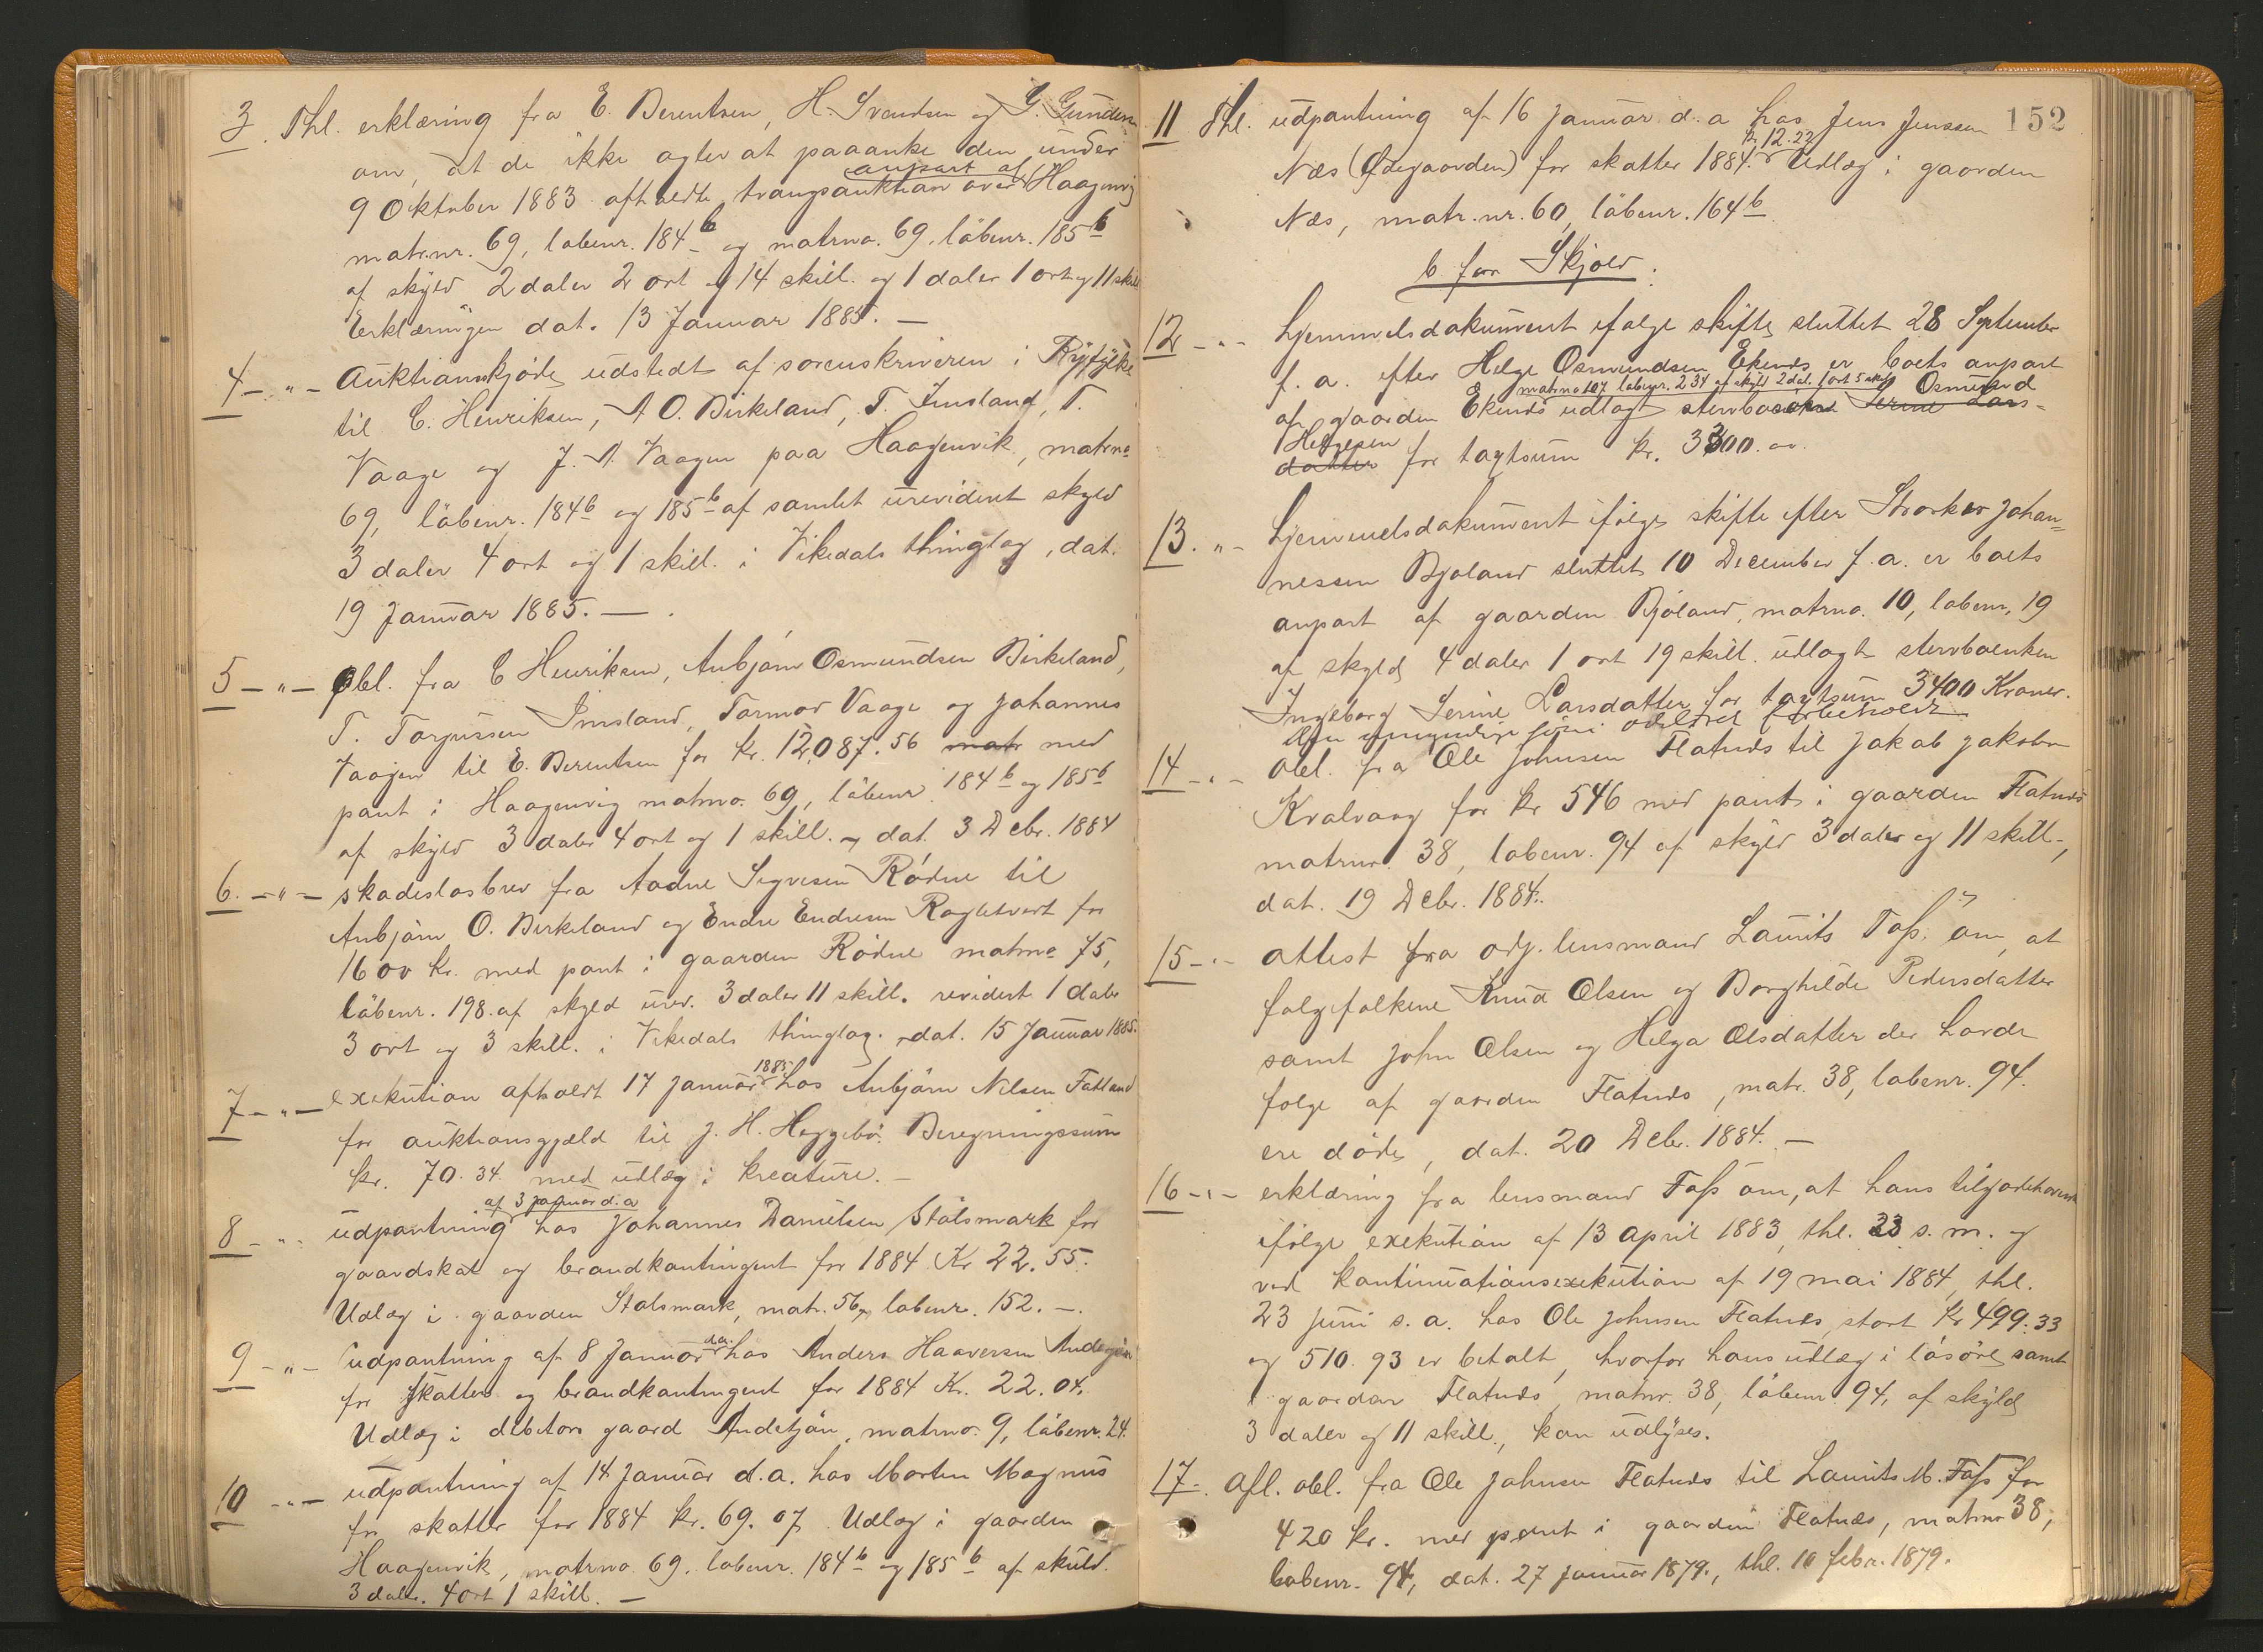 3. Thl. erklæring fra E. Berentsen, H. Svendsen og G. Gundersen
om, at de ikke agter at paaanke den under
anpart af
9 Oktober 1883 afholdte tvangsauktion over Haagenvig
matr.nr. 69, løbenr. 184b og matrno. 69, løbenr. 185b
af skyld 2 daler 2 ort og 14 skill. og 1 daler 1 ort og 11 skill
Erklæringen dat. 13 Januar 1885. —
4 – „ – Auktionsskjøde udstedt af sorenskriveren i Ryfylke
til C. Henriksen, A. O. Birkeland, T. Imsland, T.
Vaage og J. A. Vaagen paa Haagenvik, matrno
69, løbenr. 184b og 185b af samlet urevideret skyld
3 daler 4 ort og 1 skill. i Vikedals thinglag, dat.
19 Januar 1885. — .
5 – „ – Obl. fra C Henriksen, Anbjørn Osmundsen Birkeland,
T. Torjussen Imsland, Tormod Vaage og Johannes
Vaagen til E. Berentsen for kr. 12,087.56 matr med
pant i Haagenvig matrno. 69, løbenr 184b og 185b
af skyld 3 daler 4 ort og 1 skill. –, dat. 3 Decbr. 1884
6. – „ – skadesløsbrev fra Aadne Sigvesen Rødne til
Anbjørn O. Birkeland og Endre Endresen for
1600 kr. med pant i gaarden Rødne matrno 75,
løbenr. 198. af skyld urev. 3 daler 11 skill. revidert 1 daler
3 ort og 3 skill. i Vikedals thinglag. dat. 15 Januar 1885.
1885
7 – „ – exekution afholdt 17 Januar hos Anbjørn Nilsen Fatland
for auktionsgjæld til J. H. Heggebø. Beregningssum
kr. 70.34. med udlæg i kreature. –
af 3 januar d.a
8 – „ – udpantning hos Johannes Danielsen Stølsmark for
gaardskat og brandkontingent for 1884 Kr 22.55.
Udlæg i gaarden Stølsmark, matr. 56, løbenr. 152. –.
d.a.
9 – „ – udpantning af 8 Januar hos Anders Haaversen
for skatter og brandkontingent for 1884 Kr. 22.04.
Udlæg i debitors gaard Andetjøn, matrno. 9, løbenr. 24.
10 – „ – udpantning af 14 Januar d.a. hos Morten Magnus
for skatter for 1884 kr. 69.07. Udlæg i gaarden
Haagenvik, matrno 69. løbenr. 184b og 185b af skyld.
3 daler. 4 ort 1 skill. —
152
11 Thl. udpantning af 16 Januar d.a hos Jens Jenssen
kr 12.22
Næs (Ødegaarden) for skatter 1884. Udlæg i gaarden
Næs, matr.nr. 60, løbenr. 164b
b for Skjold.
12 – „ – hjemmelsdokument ifølge skifte sluttet 28 September
f. a. efter Helge Osmundsen Ekenes er boets anpart
matrno 107 løbenr. 234 af skyld 2 dal. 1 ort 5 skill Osmund
af gaarden Ekenes udlagt stervboenken Serine Lars=
Helgesen
datter for taxtsum kr. 3300.oo.
13. „ – hjemmelsdokument ifølge skifte efter Johan=
nessen Bjoland sluttet 10 December f. a. er boets
anpart af gaarden Bjoland, matrno. 10, løbenr. 19
af skyld 4 daler 1 ort 19 skill. udlagt stervboenken
Ingeborg Serine Larsdatter for taxtsum 3400 Kroner.
Den umyndige søns odelsret forbeholdt
14 – „ – obl. fra Ole Johnsen Flatnes til Jakob Jakobsen
Kvalvaag for kr 546 med pant i gaarden Flatnes
matrno. 38, løbenr. 94 af skyld 3 daler og 11 skill.,
dat. 19 Decbr. 1884.
15 – „ – attest fra lensmand Laurits Fass om, at
følgefolkene Knud Olsen og Borghilde Pedersdatter
samt John Olsen og Helga Olsdatter der havde
følge af gaarden Flatnes, matr. 38, løbenr. 94.
ere døde, dat. 20 Decbr. 1884. —
16 – „ – erklæring fra lensmand Fass om, at hans tilgodehavende
ifølge exekution af 13 April 1883, thl. 23 s. m. og
ved kontinuationsexekution af 19 mai 1884, thl.
23 juni s.a. hos Ole Johnsen Flatnes stort kr 499.33
og 510.93 er betalt, hvorfor hans udlæg i løsøre samt
i gaarden Flatnes, matnr. 38, løbenr. 94, af skyld
3 daler og 11 skill., kan udlyses.
17 –. Afl. obl. fra Ole Johnsen Flatnes til Laurits M. Fass for
420 kr. med pant i gaarden Flatnes, matrno 38,
løbenr. 94, dat. 27 januar 1879., thl. 10 febr. 1879.